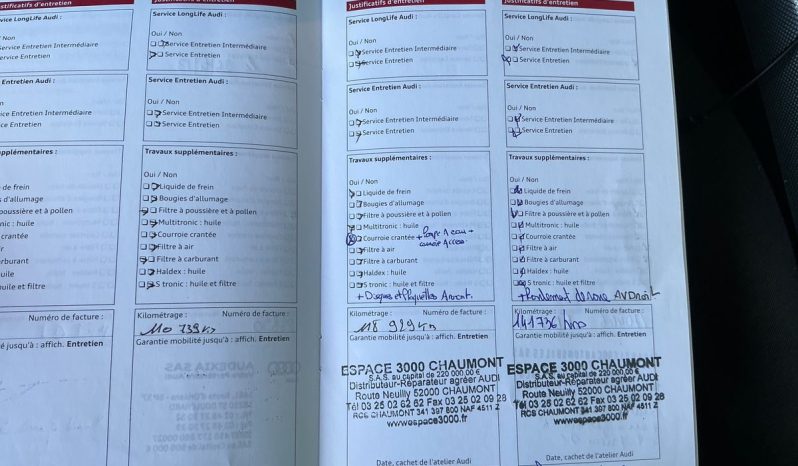 Justificatifs d'entretien
Service LongLife Audi :
Service Entretien
Entretien Audi :
Service Entretien Intermédiaire
Service Entretien
supplémentaires :
de frein
d'allumage
poussière et à pollen
huile
crantée
carburant
huile
huile et filtre
Numéro de facture :
jusqu'à : affich. Entretien
Justificatifs d'entretien
Service LongLife Audi :
Oui / Non
Service Entretien Intermédiaire
Service Entretien
Service Entretien Audi :
Oui / Non
Service Entretien Intermédiaire
Service Entretien
Travaux supplémentaires :
Oui / Non
Liquide de frein
Bougies d'allumage
Filtre à poussière et à pollen
Multitronic : huile
Courroie crantée
Filtre à air
Filtre à carburant
Haldex : huile
S tronic : huile et filtre
Kilométrage : Numéro de facture :
110 739 km
Garantie mobilité jusqu'à : affich. Entretien
Justificatifs d'entretien
Service LongLife Audi :
Oui / Non
Service Entretien Intermédiaire
Service Entretien
Service Entretien Audi :
Oui / Non
Service Entretien Intermédiaire
Service Entretien
Travaux supplémentaires :
Oui / Non
Liquide de frein
Bougies d'allumage
Filtre à poussière et à pollen
Multitronic : huile
Courroie crantée + Pompe A eau +
Filtre à air
Filtre à carburant
Haldex : huile
S tronic : huile et filtre
+ Disques et Plaquettes Avant.
Kilométrage : Numéro de facture :
118 929 km
Garantie mobilité jusqu'à : affich. Entretien
ESPACE 3000 CHAUMONT
S.A.S. au capital de 220 000,00 €
Distributeur-Réparateur agréer AUDI
Route Neuilly 52000 CHAUMONT
Tél 03 25 02 62 62 Fax 03 25 02 09 28
RCS CHAUMONT 341 397 800 NAF 4511 Z
www.espace3000.fr
Date, cachet de l'atelier Audi
Justificatifs d'entretien
Service LongLife Audi :
Oui / Non
Service Entretien Intermédiaire
Service Entretien
Service Entretien Audi :
Oui / Non
Service Entretien Intermédiaire
Service Entretien
Travaux supplémentaires :
Oui / Non
Liquide de frein
Bougies d'allumage
Filtre à poussière et à pollen
Multitronic : huile
Courroie crantée
Filtre à air
Filtre à carburant
Haldex : huile
S tronic : huile et filtre
+ Roulement de roue AV Droit
Kilométrage : Numéro de facture :
141736 kms
Garantie mobilité jusqu'à : affich. Entretien
ESPACE 3000 CHAUMONT
S.A.S. au capital de 220 000,00 €
Distributeur-Réparateur agréer AUDI
Route Neuilly 52000 CHAUMONT
Tél 03 25 02 62 62 Fax 03 25 02 09 28
RCS CHAUMONT 341 397 800 NAF 4511 Z
www.espace3000.fr
Date, cachet de l'atelier Audi